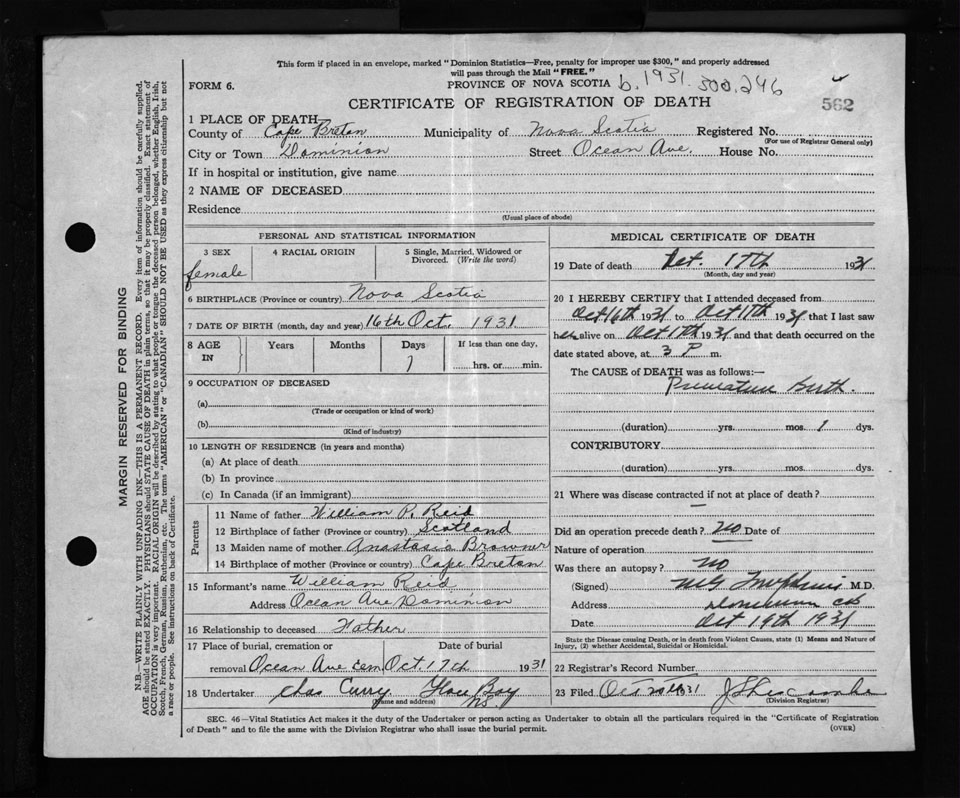 This form if placed in an envelope, marked "Dominion Statistics—Free, penalty for improper use $300," and properly addressed
will pass through the Mail "FREE."
FORM 6.
PROVINCE OF NOVA SCOTIA
b. 1931. 500.246
562
CERTIFICATE OF REGISTRATION OF DEATH
1 PLACE OF DEATH
County of Cape Breton Municipality of Nova Scotia Registered No.
(For use of Registrar General only)
City or Town Dominion Street Ocean Ave. House No.
If in hospital or institution, give name
2 NAME OF DECEASED
Residence
(Usual place of abode)
PERSONAL AND STATISTICAL INFORMATION
3 SEX 4 RACIAL ORIGIN 5 Single, Married, Widowed or
Divorced. (Write the word)
female
6 BIRTHPLACE (Province or country) Nova Scotia
7 DATE OF BIRTH (month, day and year) 16th Oct. 1931
8 AGE IN Years Months Days If less than one day,
1 hrs. or min.
9 OCCUPATION OF DECEASED
(a)
(Trade or occupation or kind of work)
(b)
(Kind of industry)
10 LENGTH OF RESIDENCE (in years and months)
(a) At place of death
(b) In province
(c) In Canada (if an immigrant)
Parents
11 Name of father William P. Reid
12 Birthplace of father (Province or country) Scotland
13 Maiden name of mother Anastasia Browner
14 Birthplace of mother (Province or country) Cape Breton
15 Informant's name William Reid
Address Ocean Ave Dominion
16 Relationship to deceased Father
17 Place of burial, cremation or Date of burial
removal Ocean Ave cem Oct. 17th 1931
18 Undertaker Chas Curry Glace Bay
(Name and address) NS
MEDICAL CERTIFICATE OF DEATH
19 Date of death Oct. 17th 1931
(Month, day and year)
20 I HEREBY CERTIFY that I attended deceased from
Oct 16th 1931 to Oct 17th 1931 that I last saw
her alive on Oct 17th 1931 and that death occurred on the
date stated above, at 3 P m.
The CAUSE of DEATH was as follows:—
Premature Birth.
(duration) yrs. mos. 1 dys.
CONTRIBUTORY
(duration) yrs. mos. dys.
21 Where was disease contracted if not at place of death?
—
Did an operation precede death? No Date of
Nature of operation
Was there an autopsy? No
(Signed) M.D.
Address Dominion CB
Date Oct 19th 1931
State the Disease causing Death, or in death from Violent Causes, state (1) Means and Nature of
Injury, (2) whether Accidental, Suicidal or Homicidal.
22 Registrar's Record Number
23 Filed Oct 20th 1931
(Division Registrar)
SEC. 46—Vital Statistics Act makes it the duty of the Undertaker or person acting as Undertaker to obtain all the particulars required in the "Certificate of Registration
of Death" and to file the same with the Division Registrar who shall issue the burial permit.
(OVER)
MARGIN RESERVED FOR BINDING
N.B.—WRITE PLAINLY WITH UNFADING INK—THIS IS A PERMANENT RECORD. Every item of information should be carefully supplied.
AGE should be stated EXACTLY. PHYSICIANS should STATE CAUSE OF DEATH in plain terms, so that it may be properly classified. Exact statement of
OCCUPATION is very important. RACIAL ORIGIN will be described by stating to what people or tongue the deceased person belonged, whether English, Irish,
Scotch, French, German, Russian, Ruthenian, etc. The terms "AMERICAN" or "CANADIAN" SHOULD NOT BE USED as they express citizenship but not
a race or people. See instructions on back of Certificate.